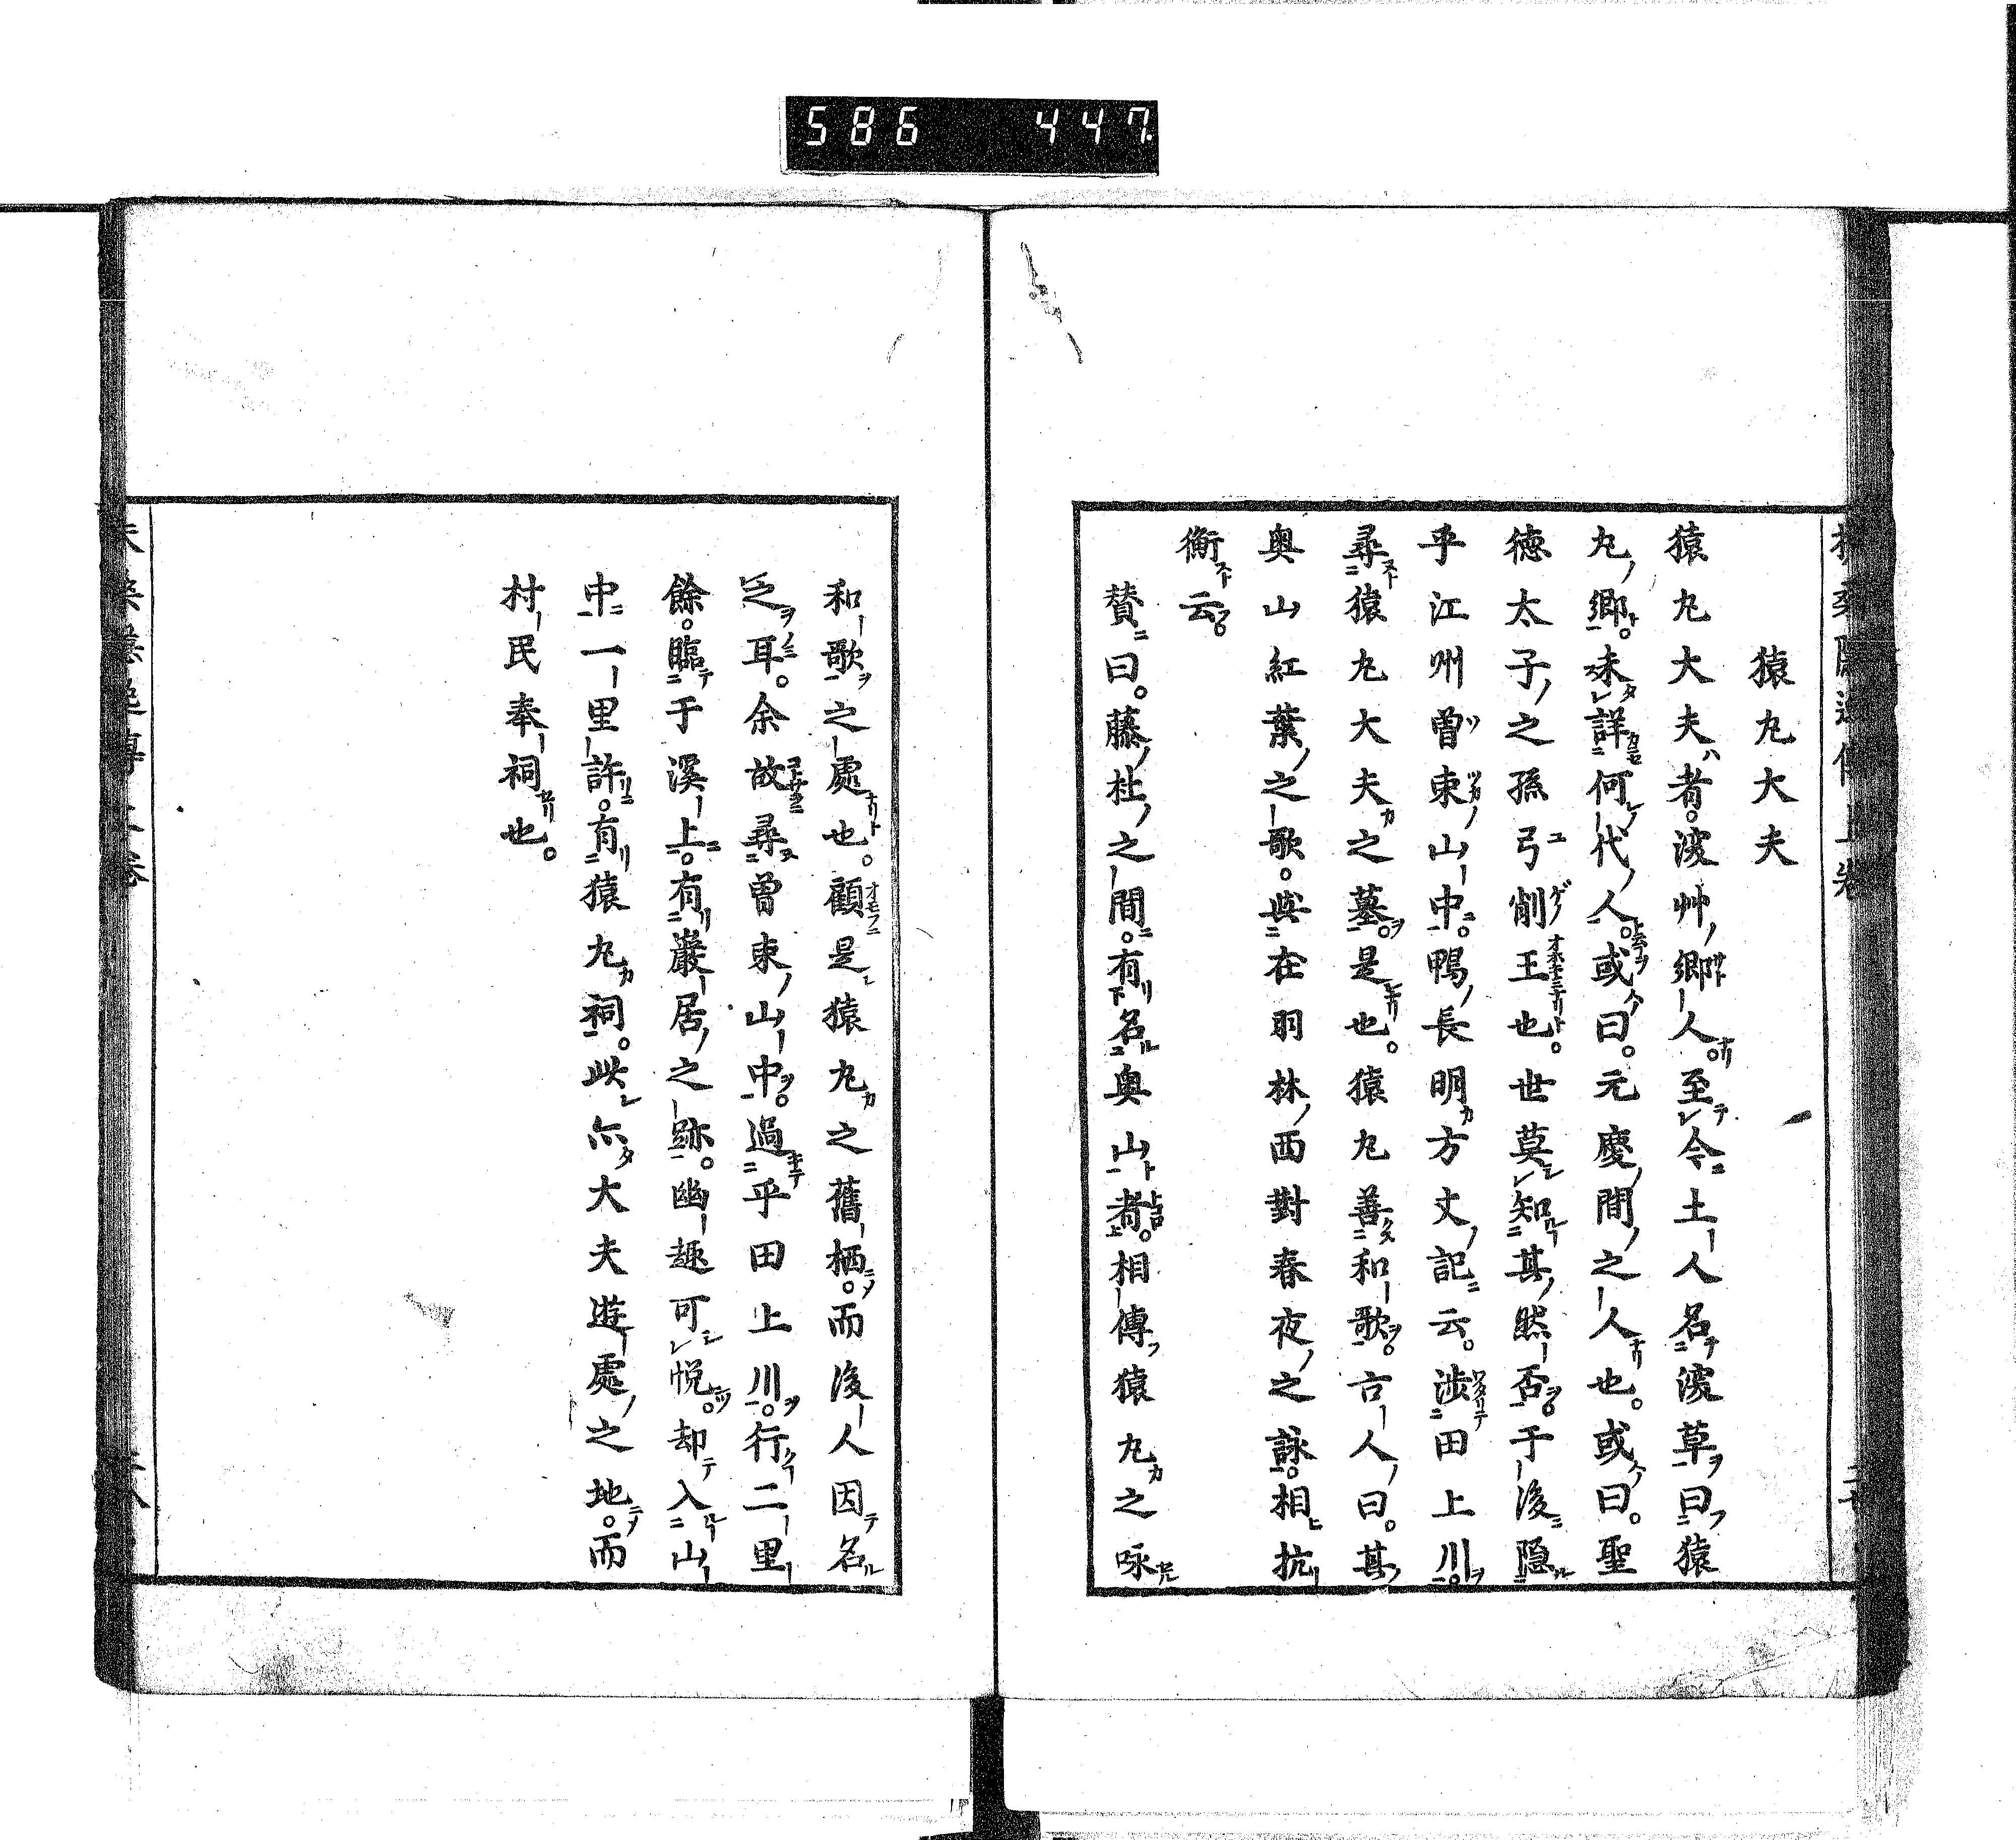 586 447.
猿丸大夫
猿丸大夫者。淩艸鄉人。至今土人名淩草曰猿
丸鄉。未詳何代人。或曰。元慶間之人也。或曰。聖
徳太子之孫弓削王也。世莫知其然否。于後隠
乎江州曽束山中。鴨長明方丈記云。渉田上川。
尋猿丸大夫之墓。是也。猿丸善和歌。古人曰。其
奥山紅葉之歌。與在羽林西對春夜之詠。相抗
衡云。
賛曰。藤杜之間。有名奥山者。相傳猿丸之咏
和歌之處也。顧是猿丸之舊栖。而後人因名
之耳。余故尋曽束山中。過乎田上川。行二里
餘。臨于溪上。有巖居之跡。幽趣可悦。却入山
中一里許。有猿丸祠。此亦大夫遊處之地。而
村民奉祠也。